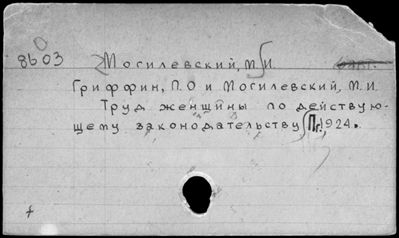 8603 Могилевский, М.И.
Гриффин, П.О и Могилевский, М.И.
Труд женщины по действую-
щему законодательству Пг. 1924.